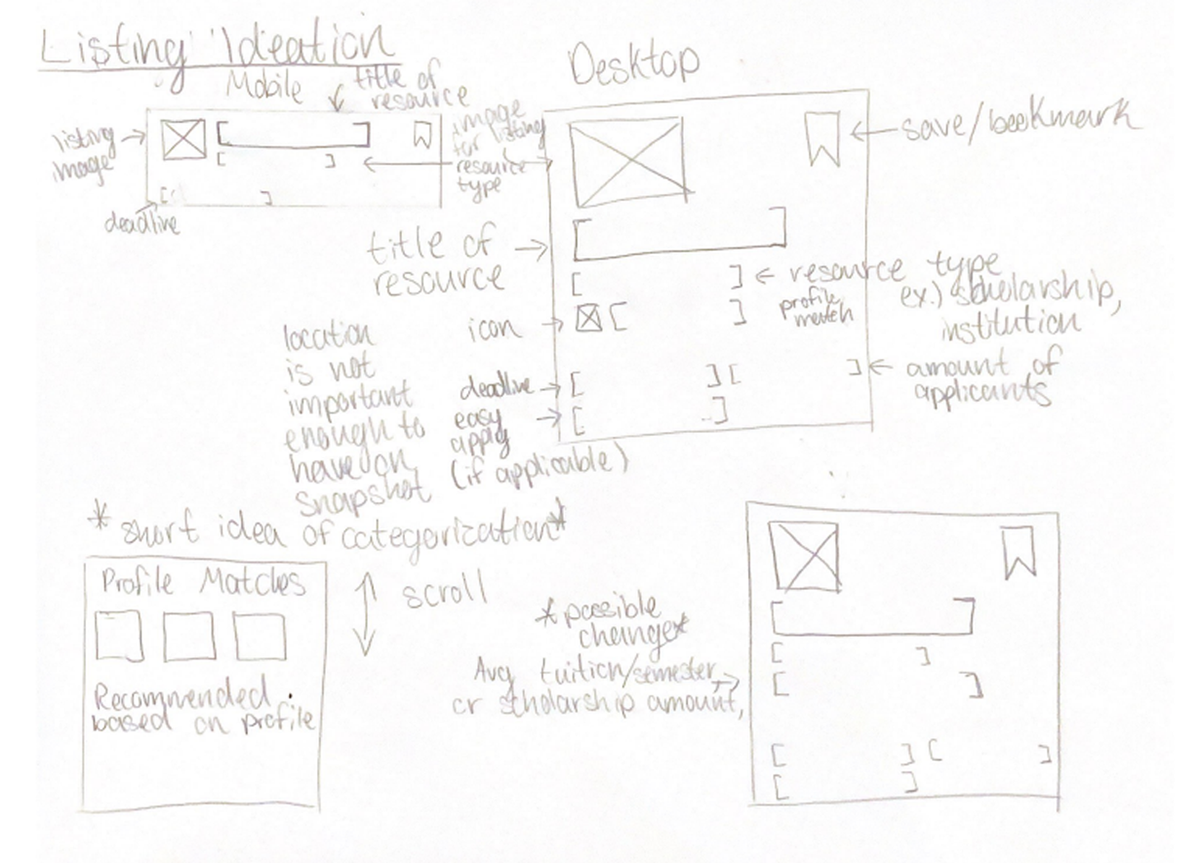 Listing Ideation
Mobile
title of
resource
listing
image
deadline
image
for listing
resource
type
Desktop
save/bookmark
title of
resource
resource type
ex.) scholarship,
institution
profile
match
icon
location
is not
important
enough to
have on
snapshot
deadline
easy
apply
(if applicable)
amount of
applicants
*short idea of categorization*
Profile Matches
Recommended
based on profile
scroll
*possible
change*
Avg tuition/semester
or scholarship amount,